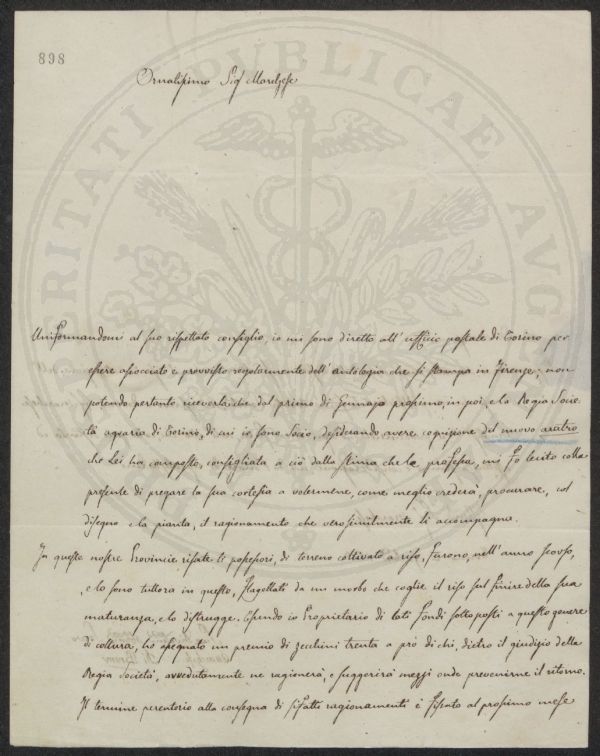 898
Ornatissimo Sig Marchese
PROSPERITATI PUBLICAE AUG
Uniformandomi al suo rispettato consiglio, io mi sono diretto all'ufficio postale di Torino per
essere associato e provvisto regolarmente dell'antologia che si stampa in Firenze; non
potendo pertanto riceverla che dal primo di Gennajo prossimo, in poi, e la Regia Socie
tà agraria di Torino, di cui io sono Socio, desiderando avere cognizione del nuovo aratro
che Lei ha composto, consigliata a ciò dalla stima che le professa, mi fo lecito colla
presente di pregare la sua cortesia a volermene, come meglio crederà, procurare, col
disegno e la pianta, il ragionamento che verosimilmente li accompagna.
In queste nostre Provincie risate li possessori, di terreno coltivato a riso, furono, nell'anno scorso,
e lo sono tuttora in questo, flagellati da un morbo che coglie il riso sul finire della sua
maturanza, e lo distrugge. Essendo io Proprietario di lati fondi sottoposti a questo genere
di coltura, ho assegnato un premio di zecchini trenta a prò di chi, dietro il giudizio della
Regia Società, avvedutamente ne ragionerà, e suggerirà mezzi onde prevenirne il ritorno.
Il termine perentorio alla consegna di sifatti ragionamenti è fissato al prossimo mese